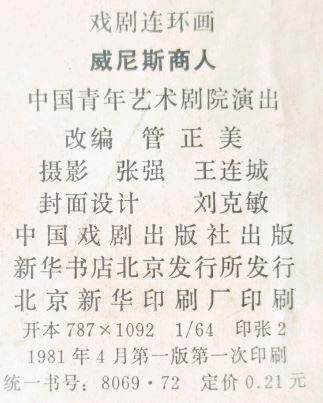 戏剧连环画
威尼斯商人
中国青年艺术剧院演出
改编 管正美
摄影 张强 王连城
封面设计 刘克敏
中国戏剧出版社出版
新华书店北京发行所发行
北京新华印刷厂印刷
开本787×1092 1/64 印张2
1981年4月第一版第一次印刷
统一书号：8069·72 定价0.21元